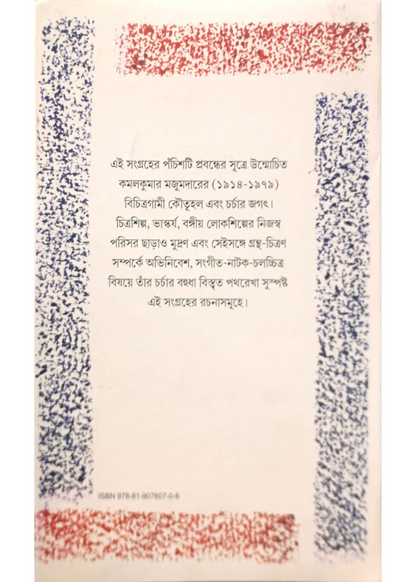 এই সংগ্রহের পঁচিশটি প্রবন্ধের সূত্রে উন্মোচিত
কমলকুমার মজুমদারের (১৯১৪-১৯৭৯)
বিচিত্রগামী কৌতূহল এবং চর্চার জগৎ।
চিত্রশিল্প, ভাস্কর্য, বঙ্গীয় লোকশিল্পের নিজস্ব
পরিসর ছাড়াও মুদ্রণ এবং সেইসঙ্গে গ্রন্থ-চিত্রণ
সম্পর্কে অভিনিবেশ, সংগীত-নাটক-চলচ্চিত্র
বিষয়ে তাঁর চর্চার বহুধা বিস্তৃত পথরেখা সুস্পষ্ট
এই সংগ্রহের রচনাসমূহে।
ISBN 978-81-907607-0-6